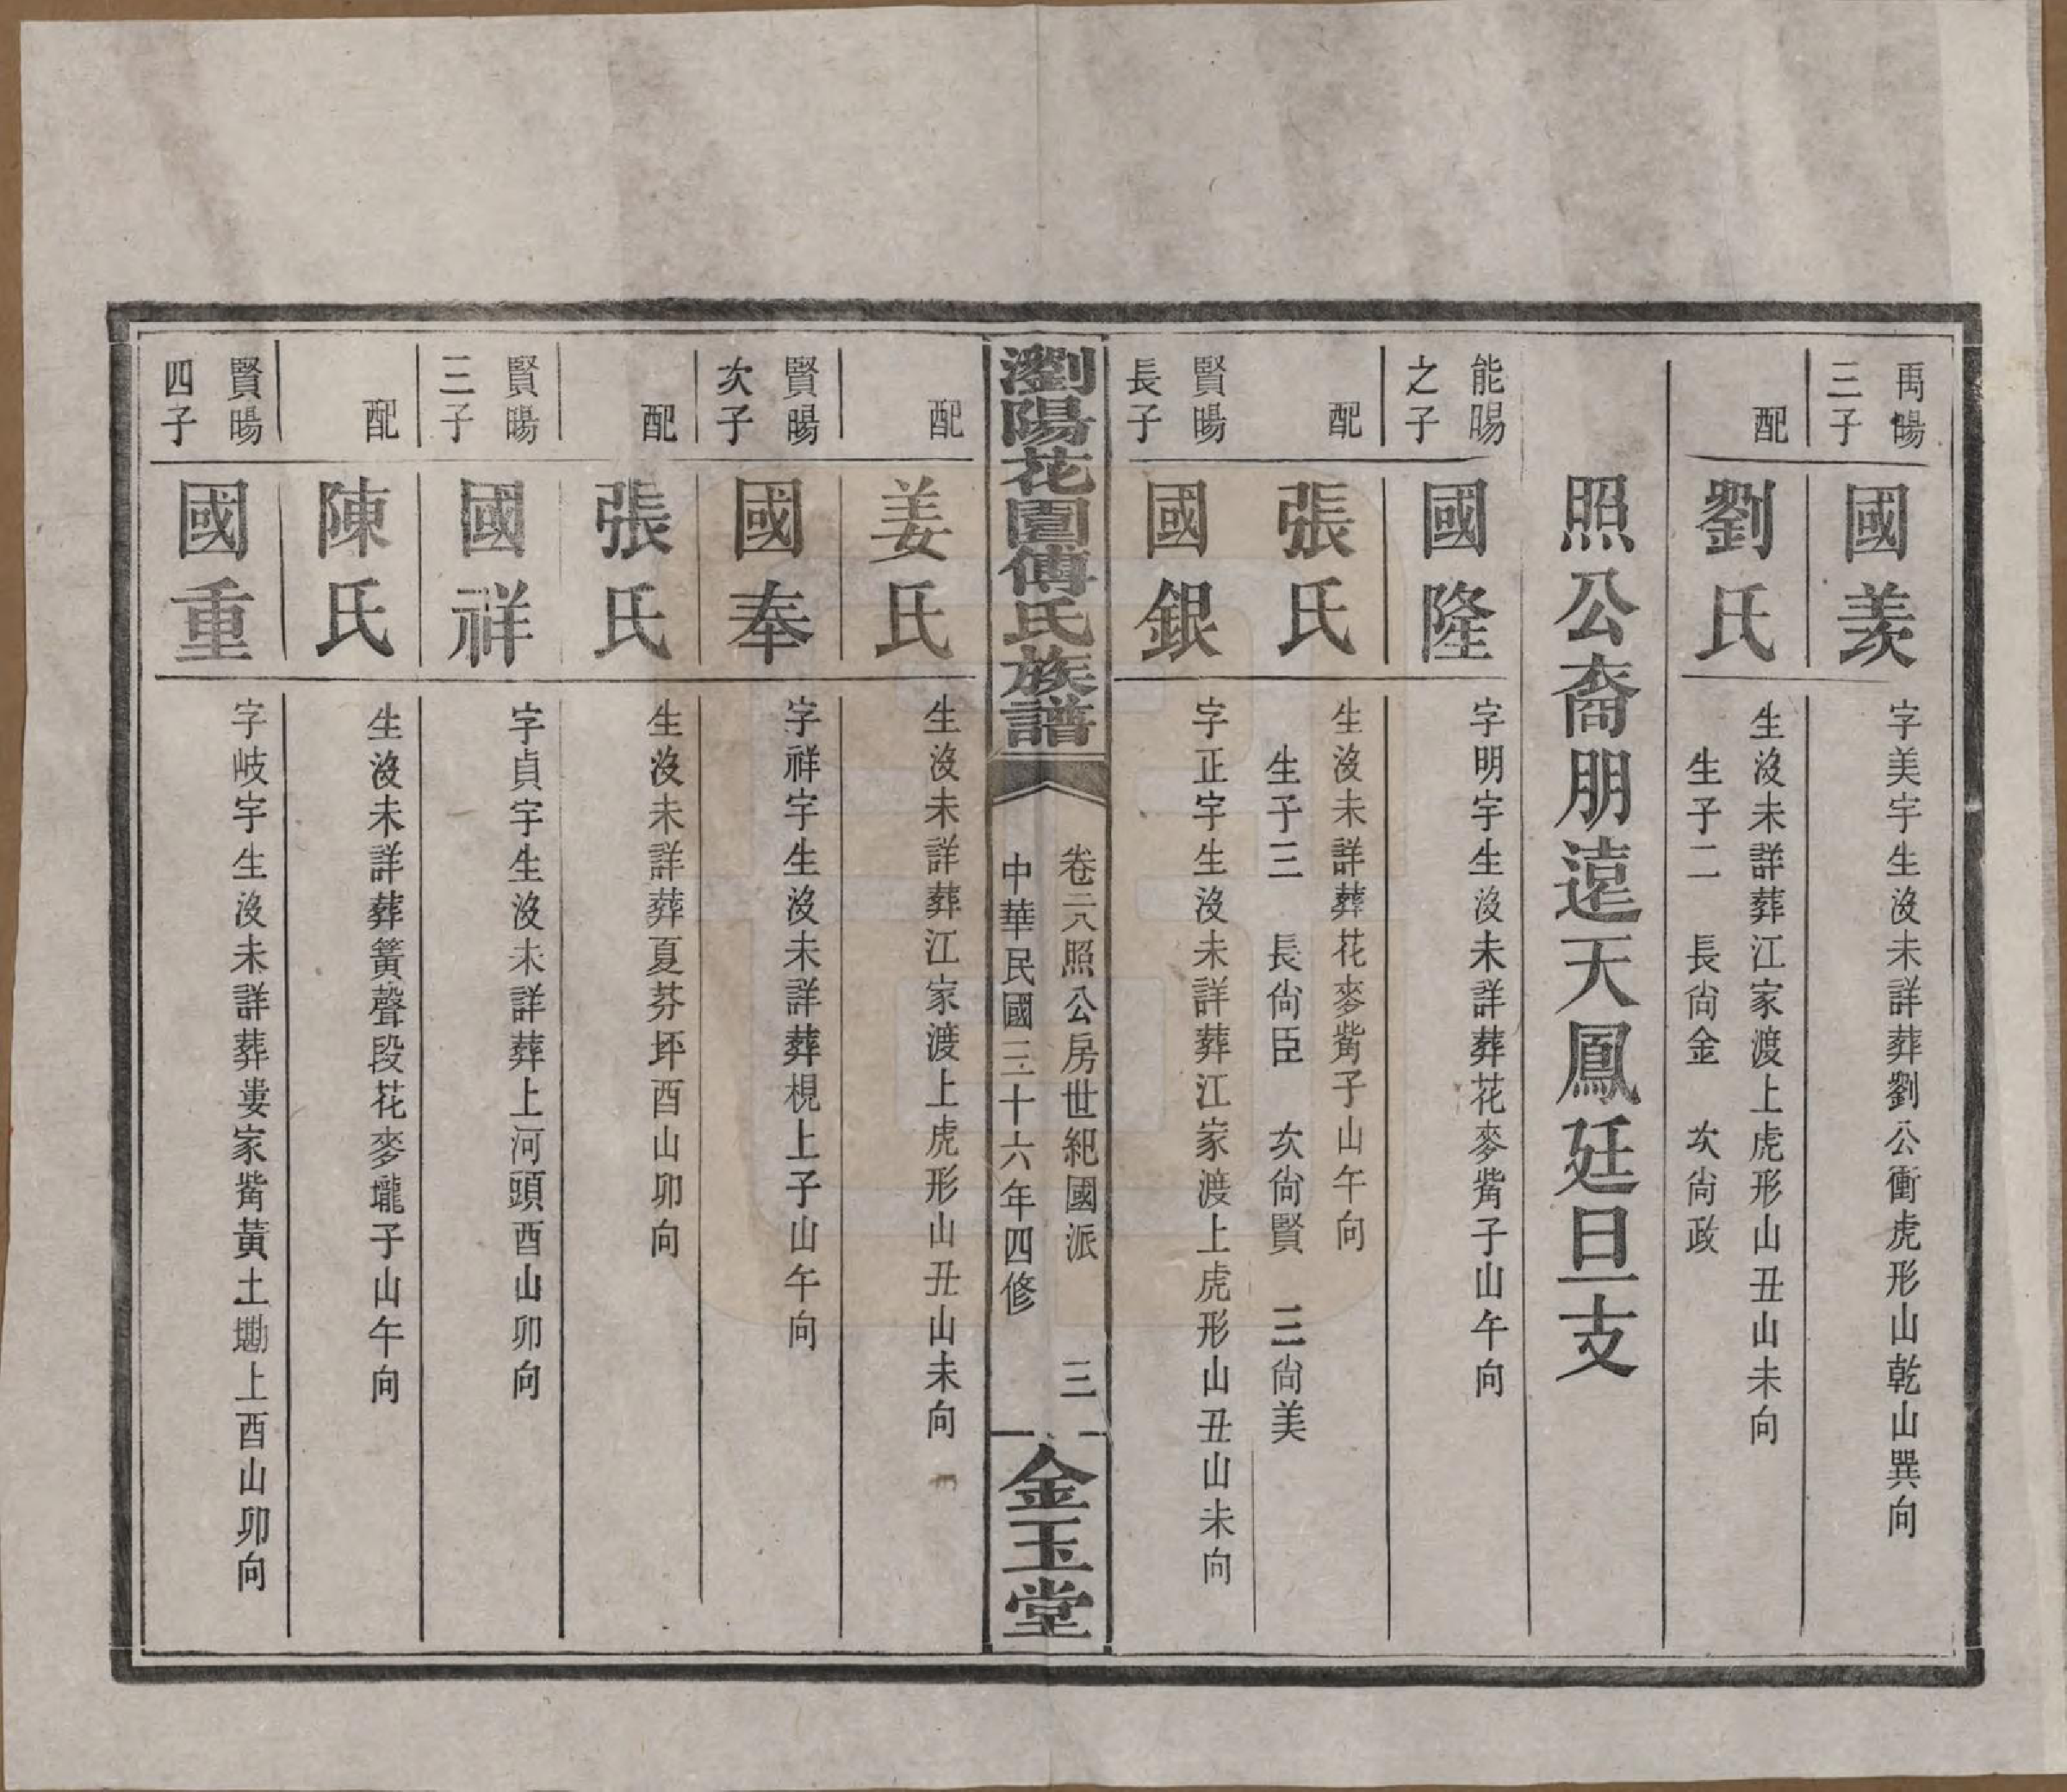 禹暘
三子
國羨
字美宇生沒未詳葬劉公衝虎形山乾山巽向
配
劉氏
生沒未詳葬江家渡上虎形山丑山未向
生子二　長尙金　次尙政
照公裔朋遠天鳳廷旦支
能暘
之子
國隆
字明宇生沒未詳葬花麥觜子山午向
配
張氏
生沒未詳葬花麥觜子山午向
生子三　長尙臣　次尙賢　三尙美
賢暘
長子
國銀
字正宇生沒未詳葬江家渡上虎形山丑山未向
瀏陽花園傅氏族譜
卷二八照公房世紀國派　三
中華民國三十六年四修
金玉堂
配
姜氏
生沒未詳葬江家渡上虎形山丑山未向
賢暘
次子
國奉
字祥宇生沒未詳葬梘上子山午向
配
張氏
生沒未詳葬夏芬坏酉山卯向
賢暘
三子
國祥
字貞宇生沒未詳葬上河頭酉山卯向
配
陳氏
生沒未詳葬簧聲段花麥壠子山午向
賢暘
四子
國重
字岐宇生沒未詳葬婁家觜黃土墈上酉山卯向